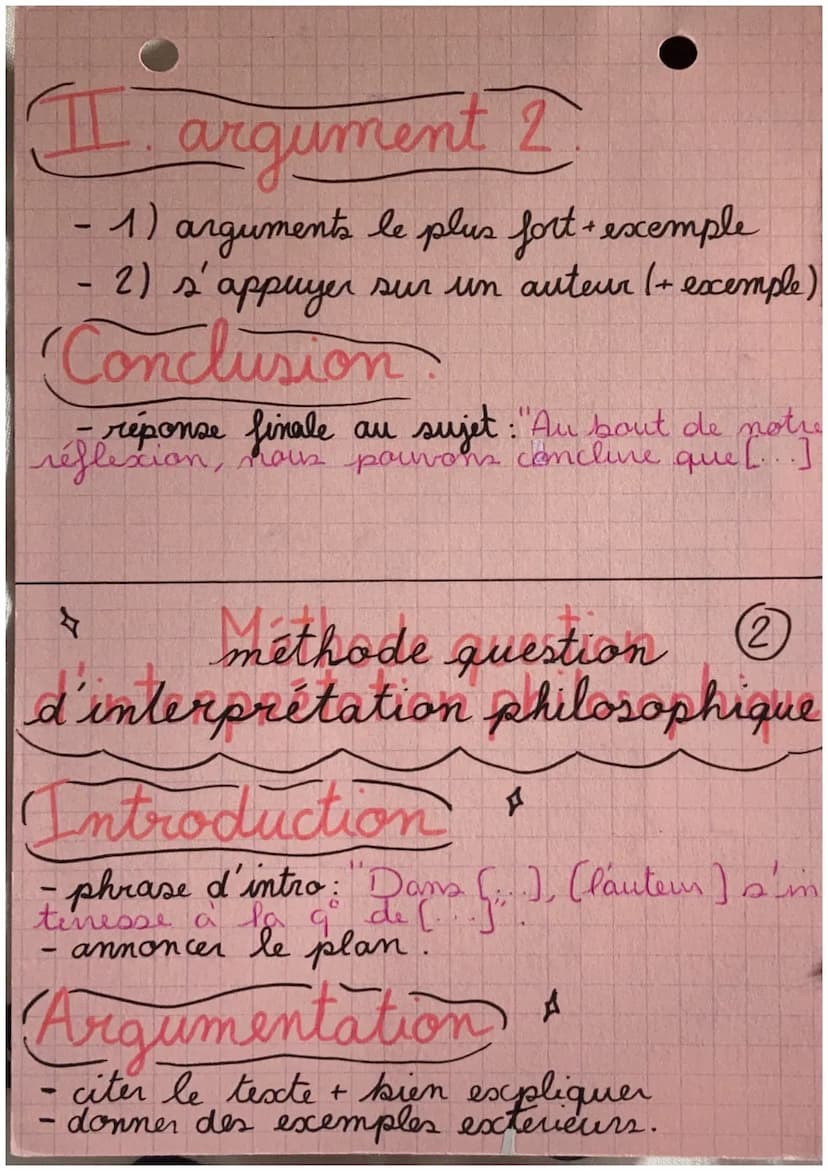 II. argument 2.
- 1) arguments le plus fort + exemple
- 2) s'appuyer sur un auteur (+ exemple)
Conclusion.
- réponse finale au sujet : "Au bout de notre
réflexion, nous pouvons conclure que [...]
Méthode question ②
d'interprétation philosophique
Introduction
- phrase d'intro : "Dans [...], [l'auteur] s'in
teresse à la q° de [...]".
- annoncer le plan.
Argumentation
- citer le texte + bien expliquer
- donner des exemples exterieurs.